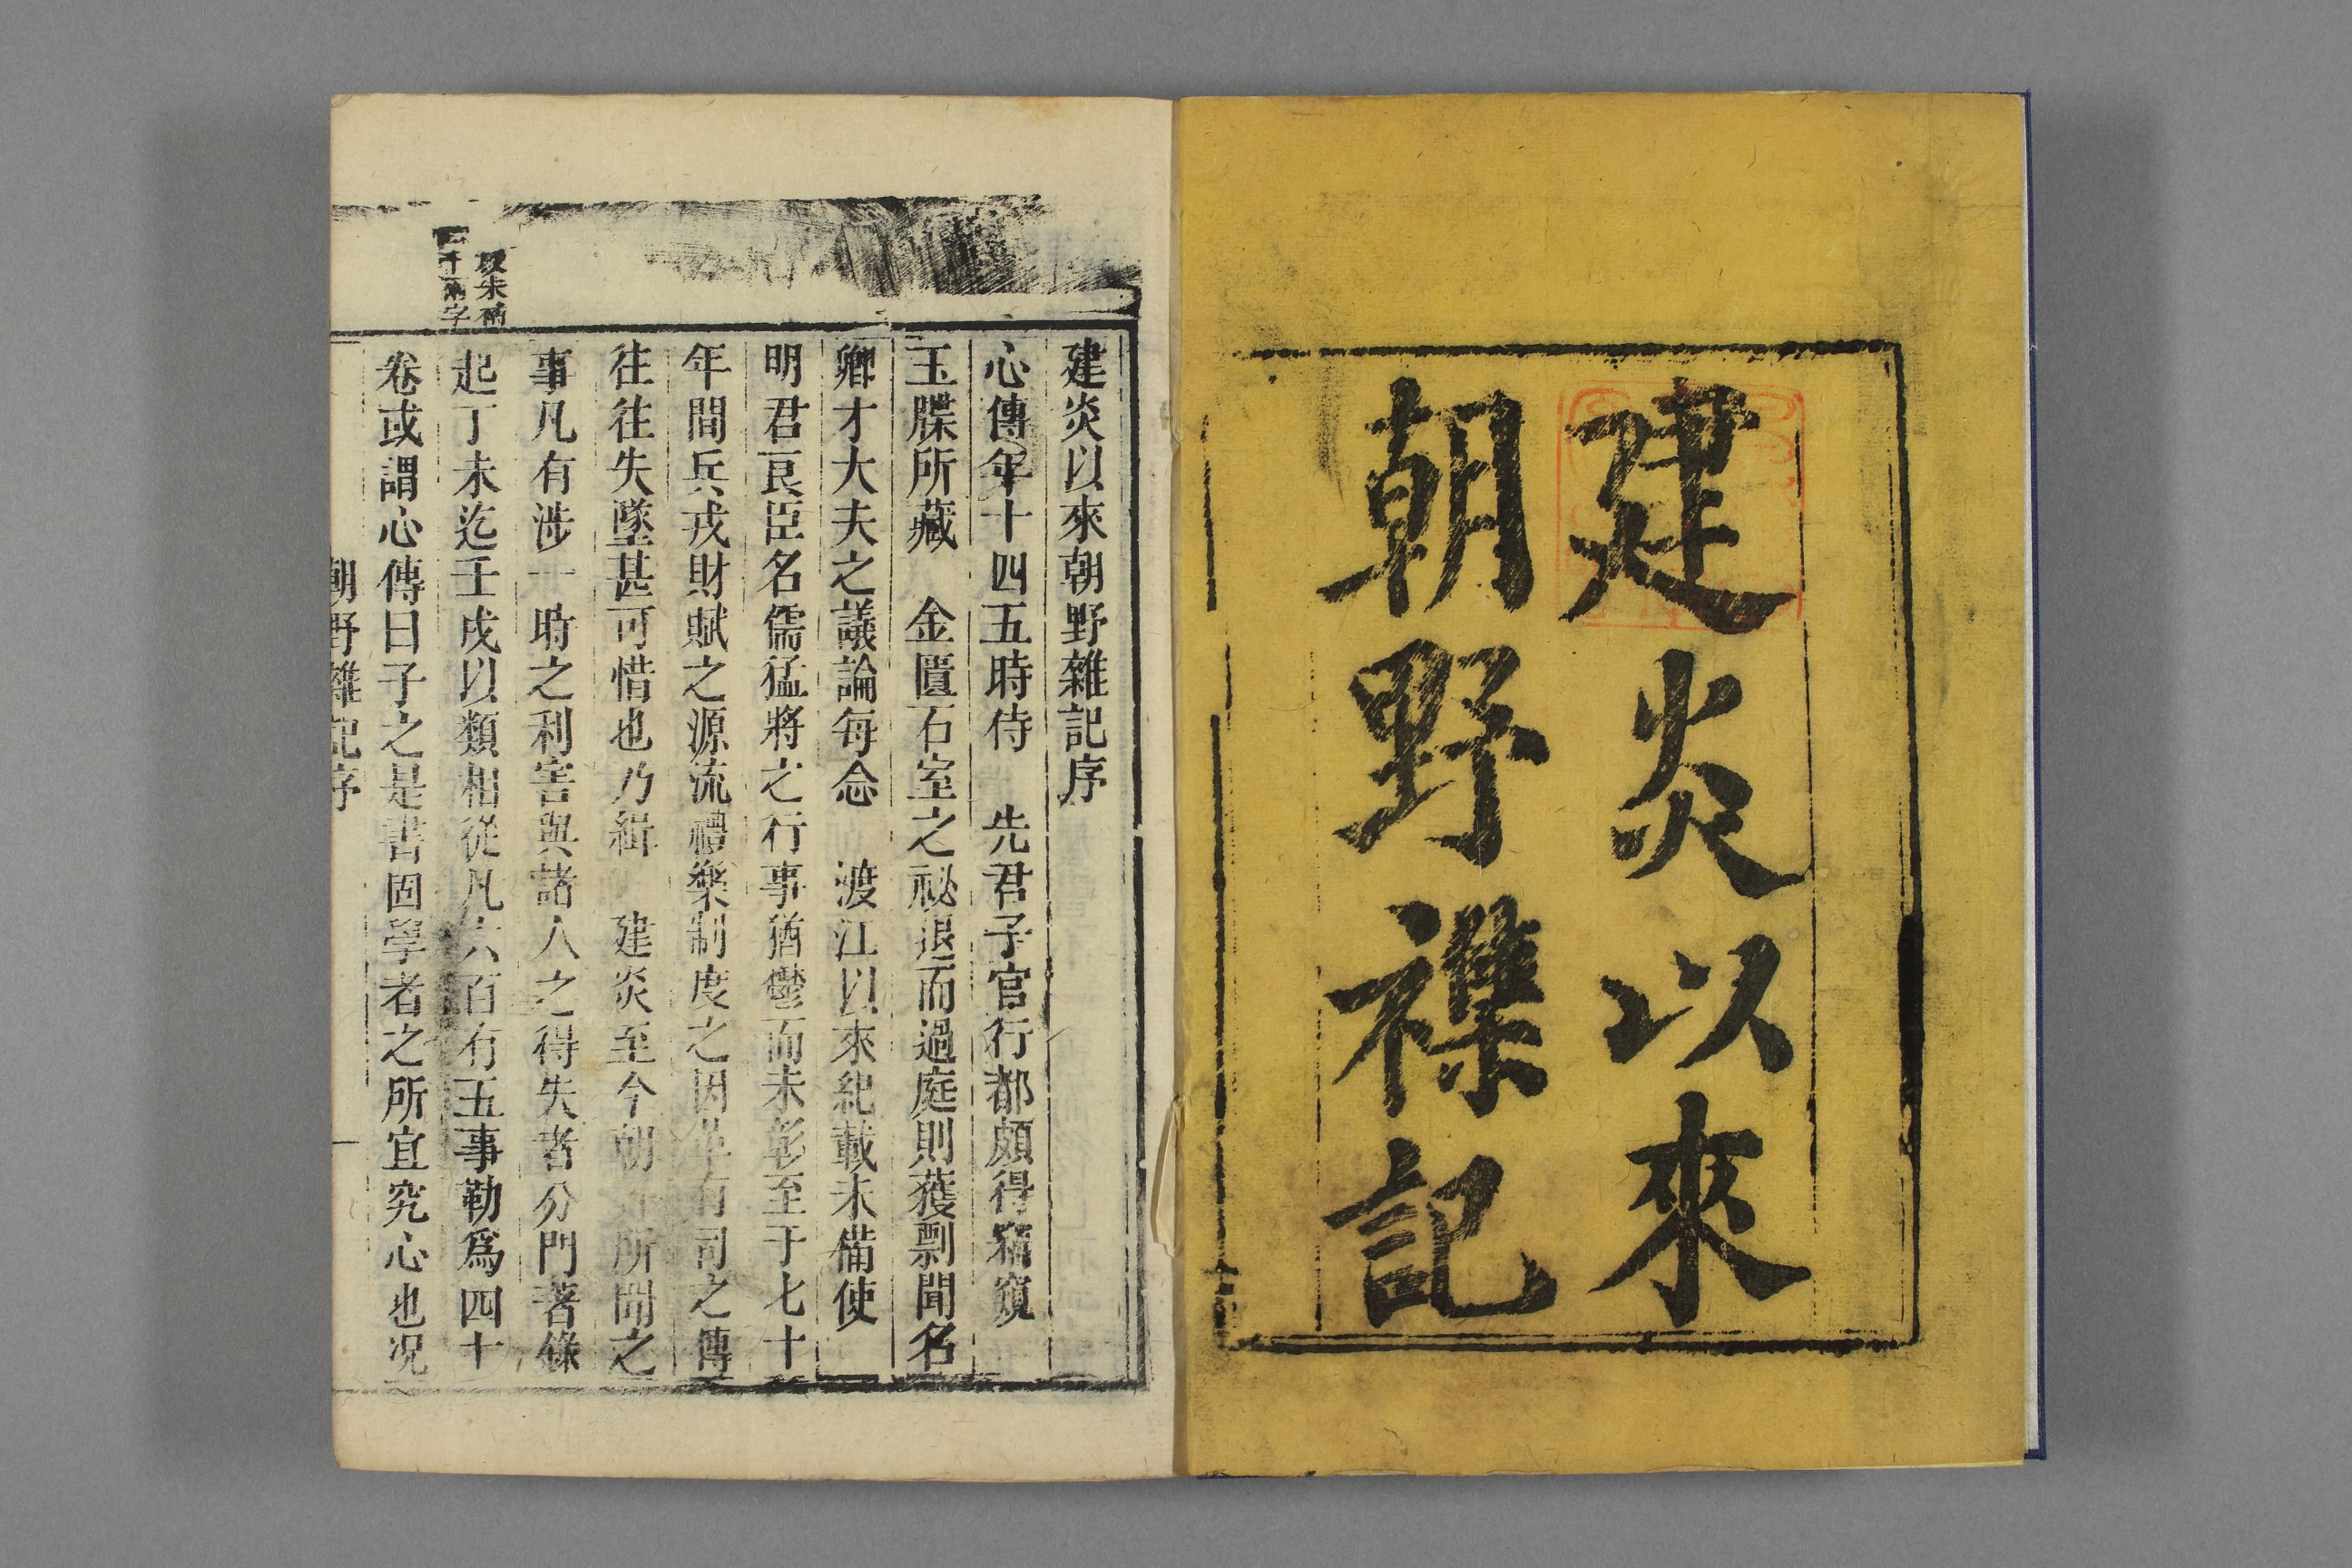 建炎以來
朝野襍記
建炎以來朝野雜記序
心傳年十四五時侍　先君子官行都頗得竊窺
玉牒所藏　金匱石室之祕退而過庭則獲剽聞名
卿才大夫之議論每念　渡江以來紀載未備使
明君良臣名儒猛將之行事猶鬱而未彰至于七十
年間兵戎財賦之源流禮樂制度之因革有司之傳
往往失墜甚可惜也乃緝　建炎至今朝野所聞之
事凡有涉一時之利害與諸人之得失者分門著錄
起丁未迄壬戌以類相從凡六百有五事勒爲四十
卷或謂心傳曰子之是書固學者之所宜究心也况
朝野雜記序
一